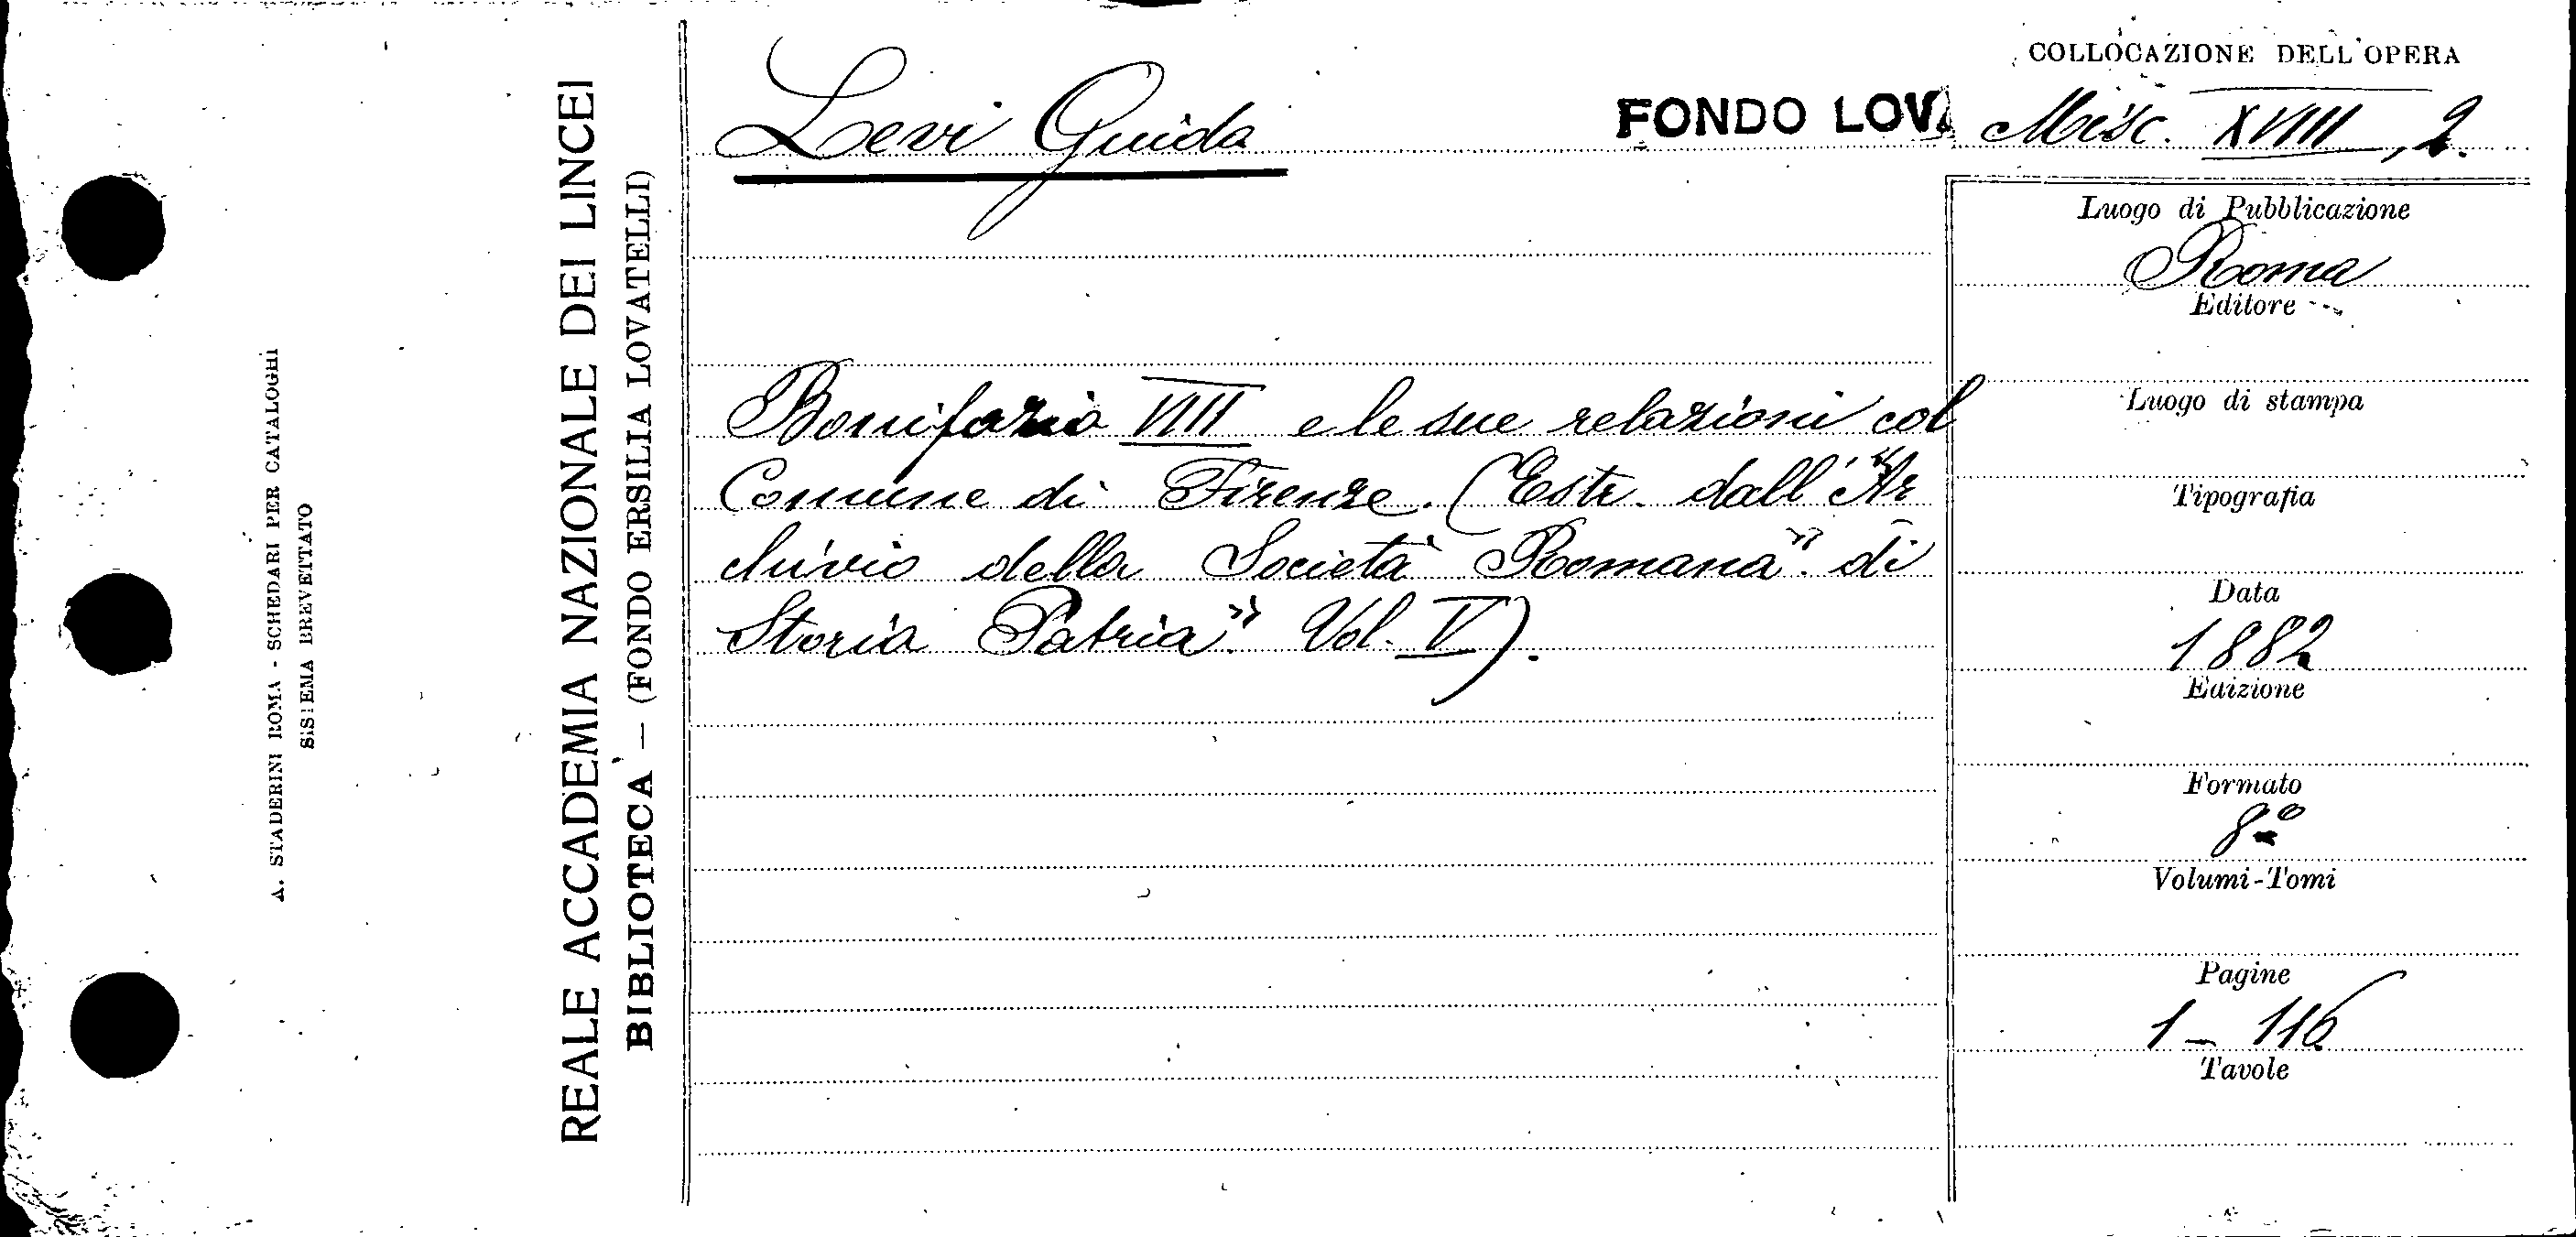 A. STADERINI ROMA - SCHEDARI PER CATALOGHI
SISTEMA BREVETTATO
REALE ACCADEMIA NAZIONALE DEI LINCEI
BIBLIOTECA - (FONDO ERSILIA LOVATELLI)
Levi Guida
FONDO LOV
COLLOCAZIONE DELL'OPERA
Misc. XVIII, 2.
Bonifazio VIII e le sue relazioni col
Comune di Firenze. (Estr. dall'"Ar
chivio della Società Romana" di
Storia Patria" Vol. V).
Luogo di Pubblicazione
Roma
Editore
Luogo di stampa
Tipografia
Data
1882
Edizione
Formato
8º
Volumi-Tomi
Pagine
1 - 116
Tavole